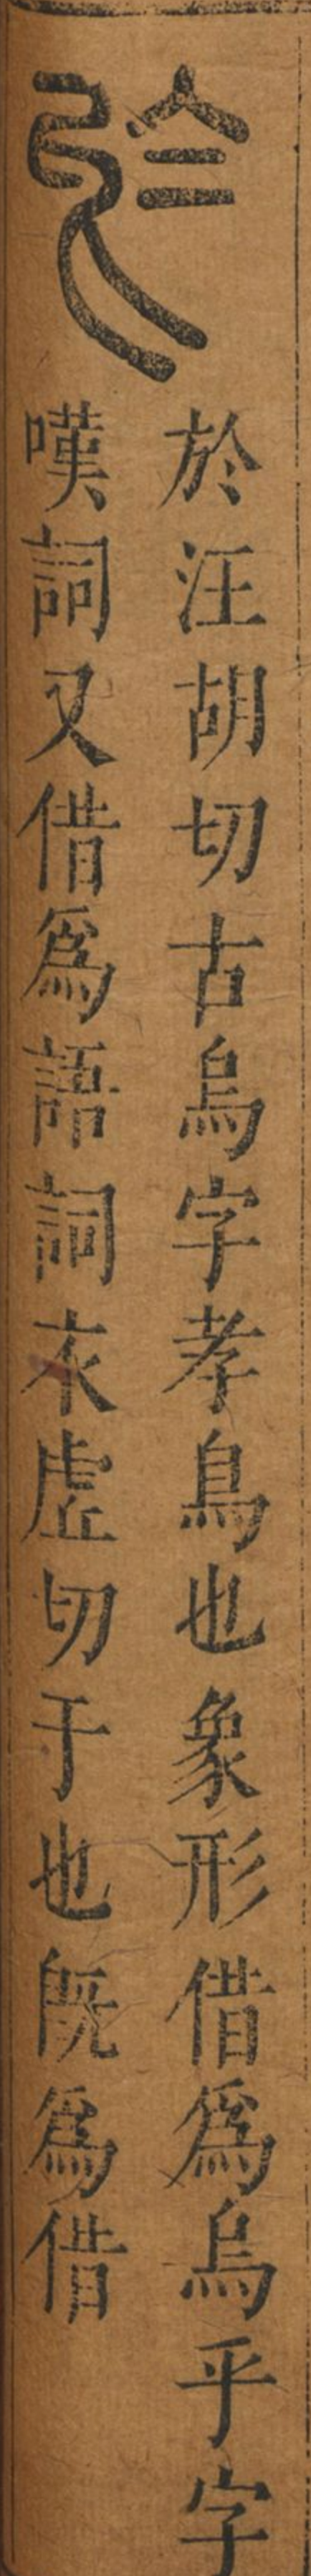 於汪胡切古烏字孝鳥也象形借爲烏乎字
嘆詞又借爲語詞衣虛切于也旣爲借